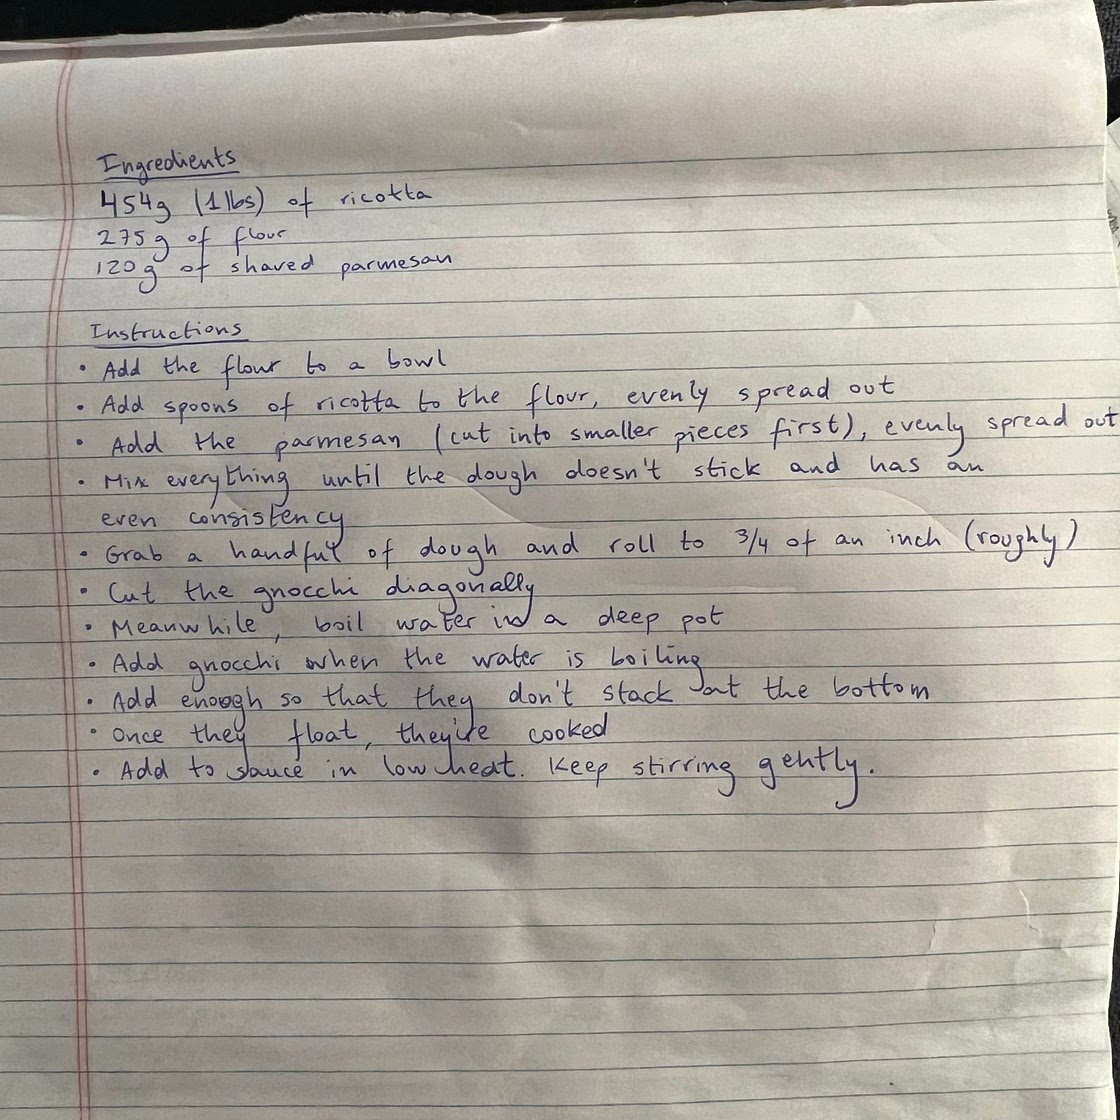 Ingredients
454g (1 lbs) of ricotta
275g of flour
120g of shaved parmesan
Instructions
• Add the flour to a bowl
• Add spoons of ricotta to the flour, evenly spread out
• Add the parmesan (cut into smaller pieces first), evenly spread out
• Mix everything until the dough doesn't stick and has an
even consistency
• Grab a handful of dough and roll to 3/4 of an inch (roughly)
• Cut the gnocchi diagonally
• Meanwhile, boil water in a deep pot
• Add gnocchi when the water is boiling
• Add enough so that they don't stack at the bottom
• Once they float, they're cooked
• Add to sauce in low heat. Keep stirring gently.